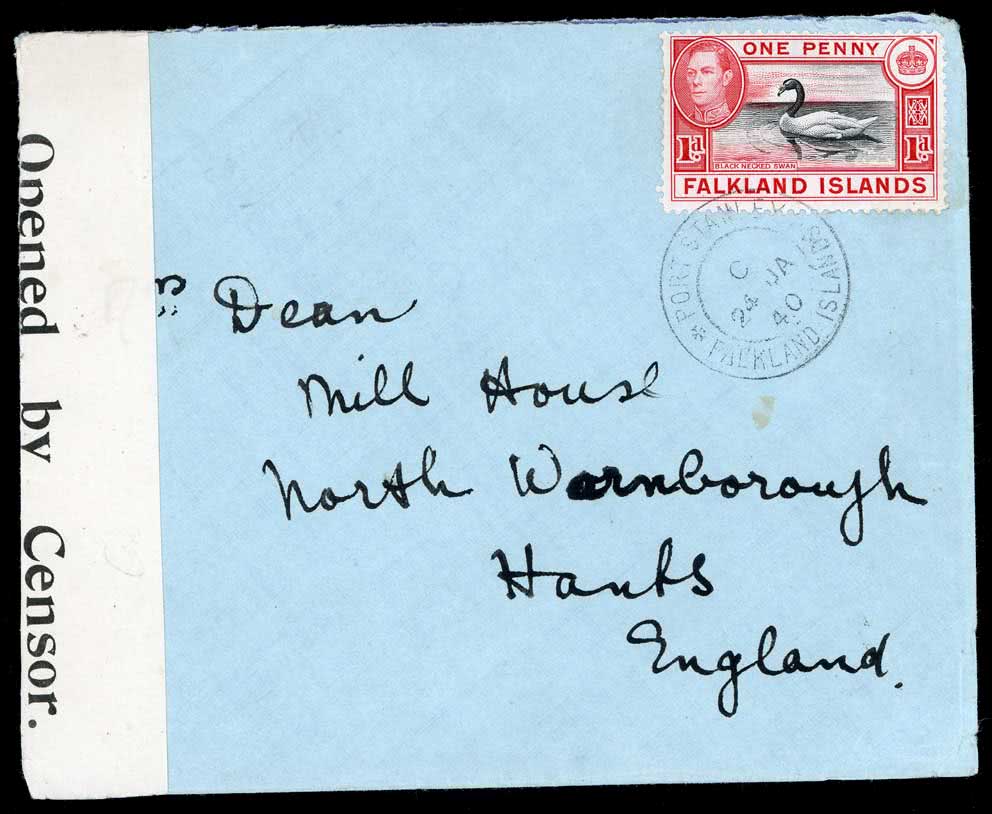 Opened by Censor.
ONE PENNY
1d 1d
BLACK NECKED SWAN
FALKLAND ISLANDS
PORT STANLEY
FALKLAND ISLANDS
C
24 JA
40
Dean
Mill House
North Warnborough
Hants
England.